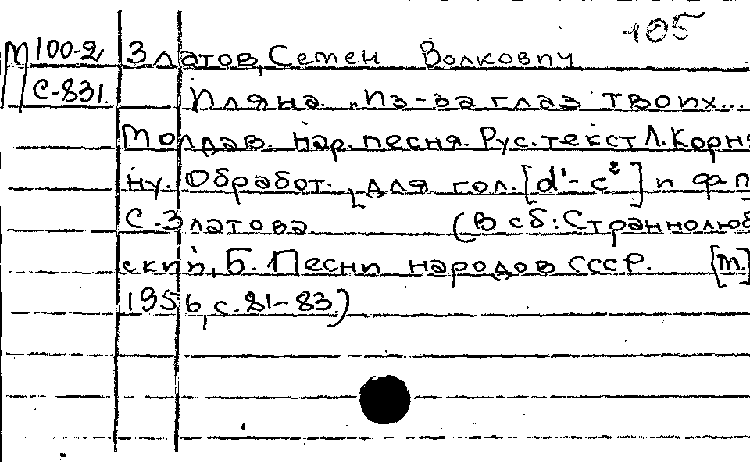 105
М 100-2 Златов, Семен Волкович
С-831 Иляна "Из-за глаз твоих...
Молдав. нар. песня. Рус. текст Л. Корня
ну. Обработ. для гол. [d¹-c²] и ф-п
С. Златова. (В сб: Страннолюб
ский, Б. Песни народов СССР. [М.]
1956, с. 81-83)